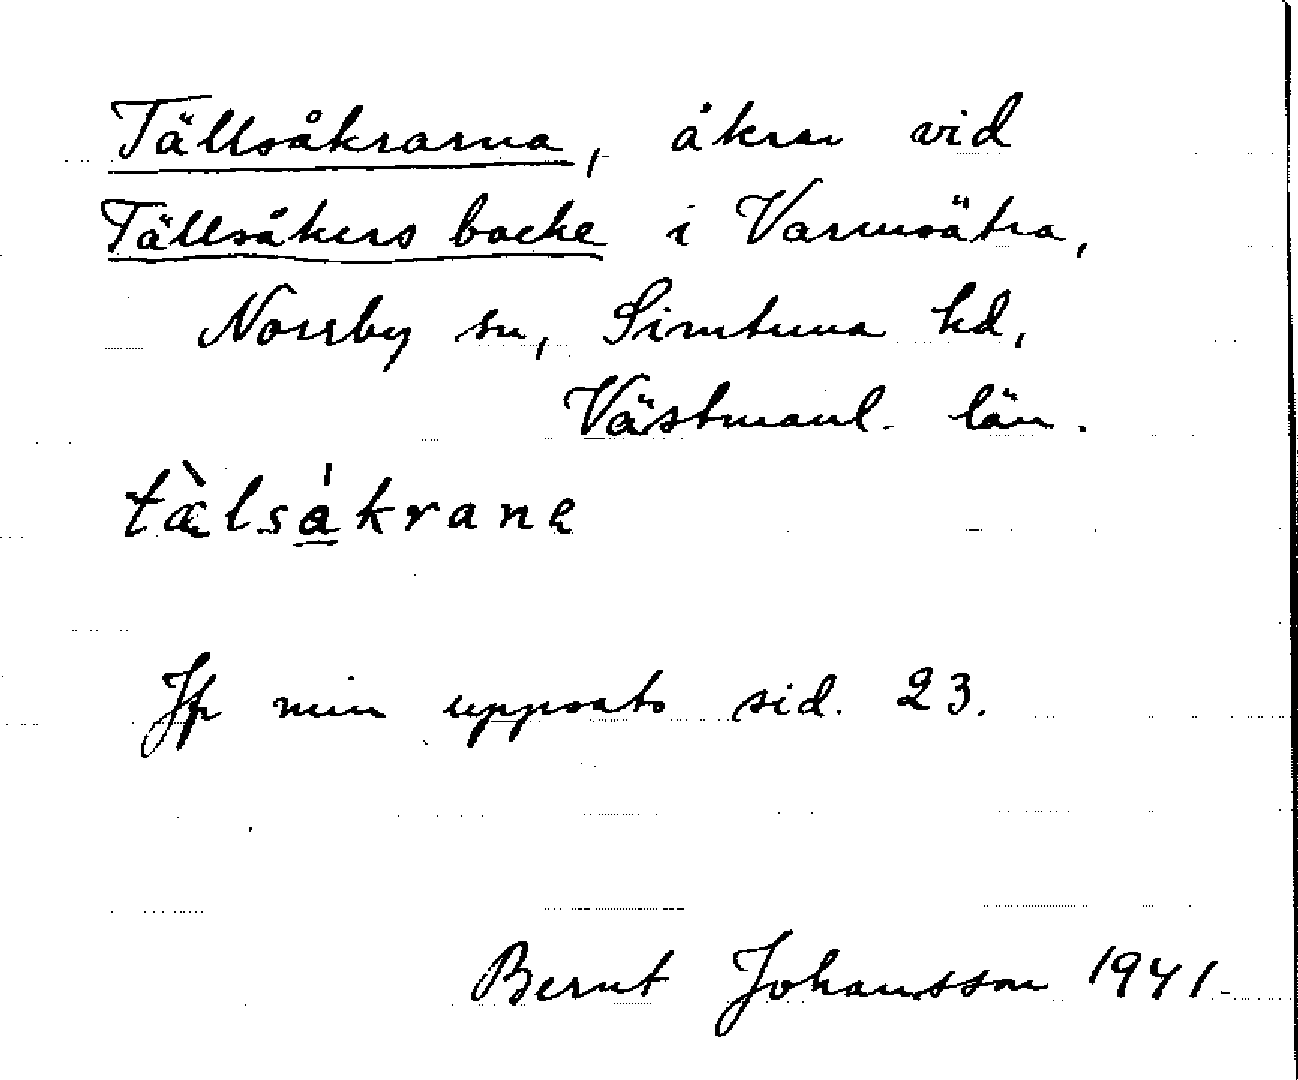 Tällsåkrarna, åkrar vid
Tällsåkers backe i Varmsätra,
Norrby sn, Simtuna hd,
Västmanl. län.
tæ̀lsa̲̍kranɐ
Jfr min uppsats sid. 23.
Bernt Johansson 1941